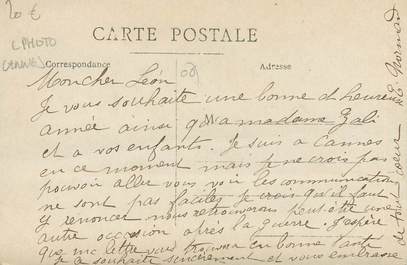 20 €
CPHOTO
CANNES
CARTE POSTALE
Correspondance
Adresse
Mon cher Léon
Je vous souhaite une bonne et heureuse
année ainsi qu'a madame Zali
et a vos enfants. Je suis a Cannes
en ce moment mais je ne crois pas
pouvoir aller vous voir les communications
ne sont pas faciles je crois qu'il faut
y renoncer nous retrouverons peut-être une
autre occasion après la guerre. J'espère
que ma lettre vous trouvera en bonne santé
je le souhaite sincèrement et vous embrasse
de tout coeur